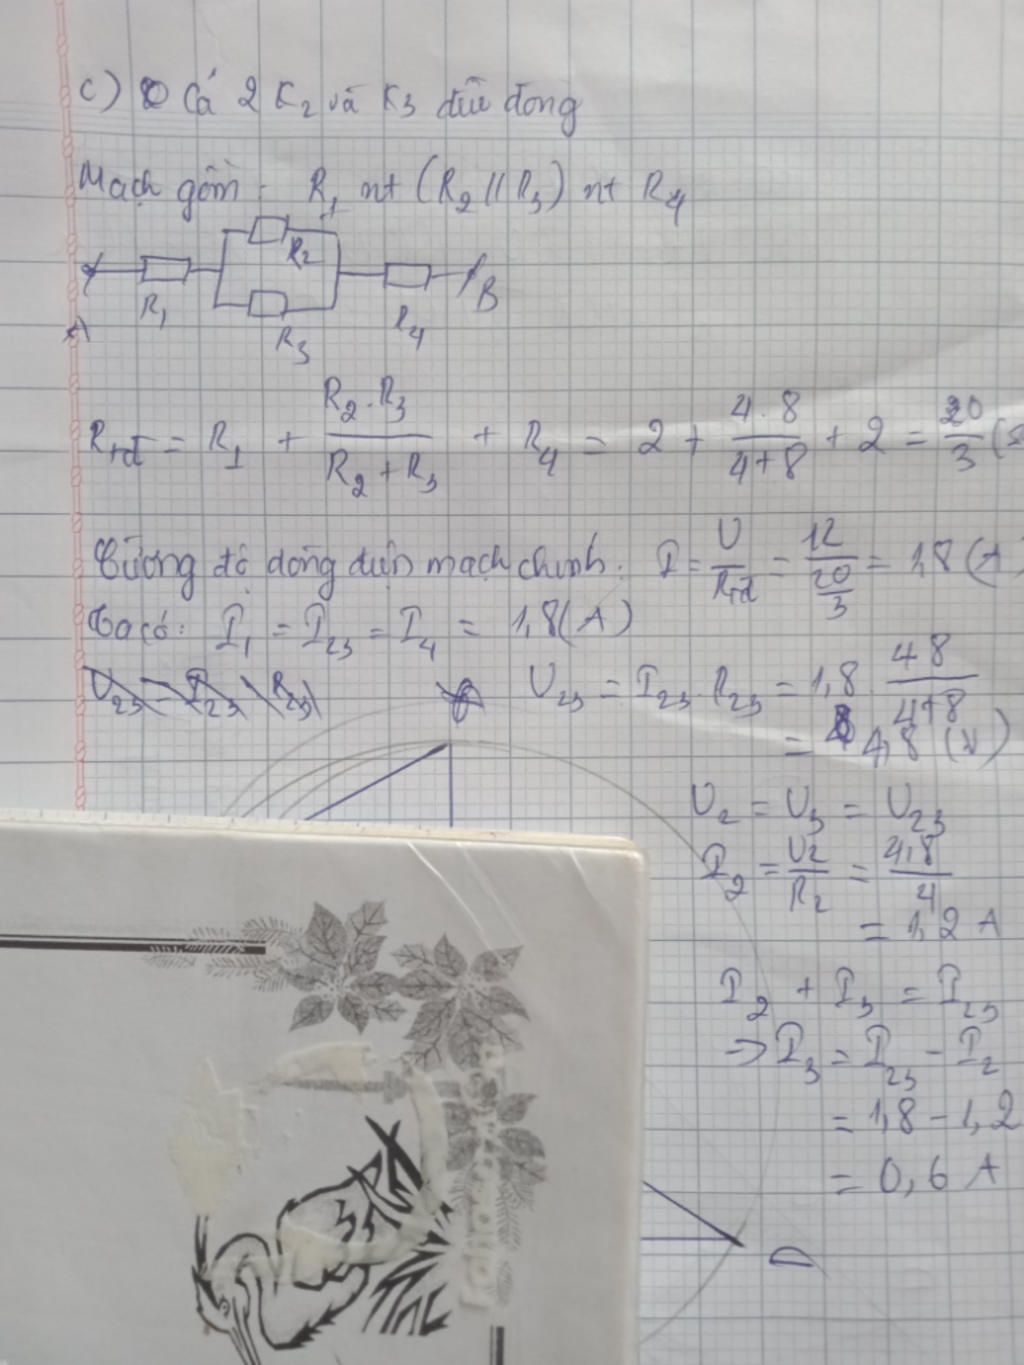 c) Cả 2 K2 và K3 đều đóng
Mạch gồm: R1 nt (R2 // R3) nt R4
R2
A R1 R4 B
R3
Rtđ = R1 + R2 . R3 / R2 + R3 + R4 = 2 + 4 . 8 / 4 + 8 + 2 = 20 / 3
Cường độ dòng điện mạch chính: I = U / Rtđ = 12 / 20/3 = 1,8 (A)
Ta có: I1 = I23 = I4 = 1,8 (A)
U23 = I23 . R23
U23 = I23 . R23 = 1,8 48 / 4+8
= 4,8 (V)
U2 = U3 = U23
I2 = U2 / R2 = 4,8 / 4
= 1,2 A
I2 + I3 = I23
=> I3 = I23 - I2
= 1,8 - 1,2
= 0,6 A
D